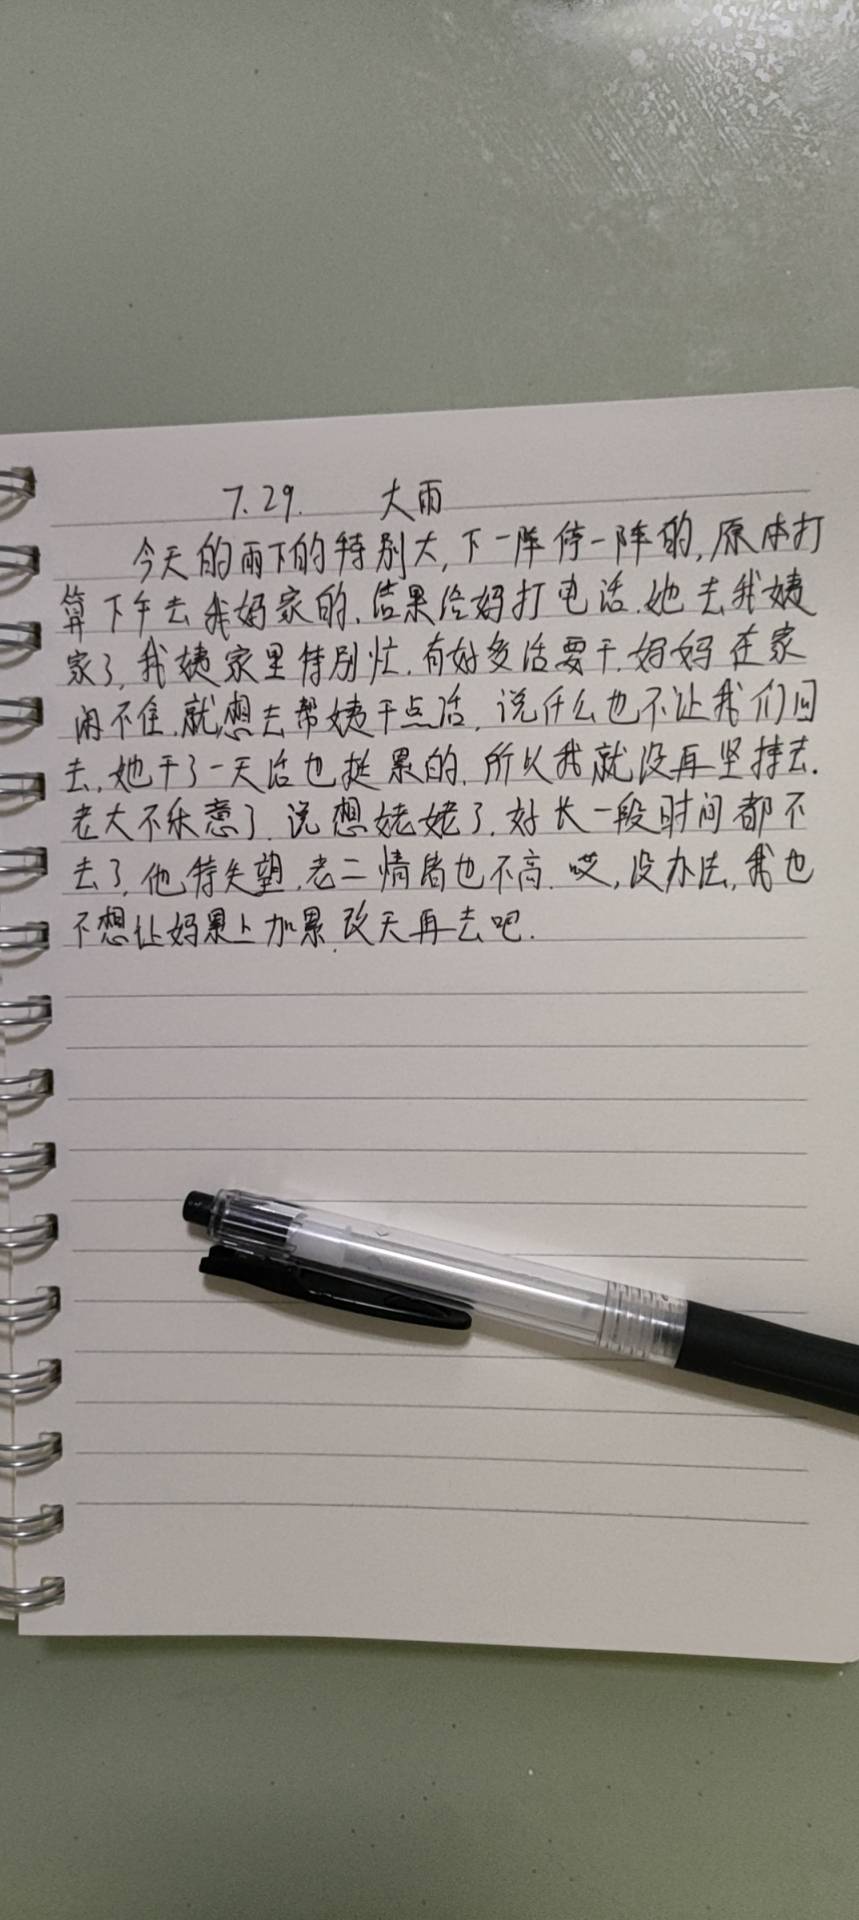 7.29. 大雨
今天的雨下的特别大,下一阵停一阵的,原本打
算下午去我妈家的,结果给妈打电话.她去我姨
家了,我姨家里特别忙.有好多活要干.妈妈在家
闲不住.就想去帮姨干点活,说什么也不让我们回
去,她干了一天活也挺累的.所以我就没再坚持去.
老大不乐意了.说想姥姥了.好长一段时间都不
去了,他特失望.老二情绪也不高.哎,没办法,我也
不想让妈累上加累.改天再去吧.